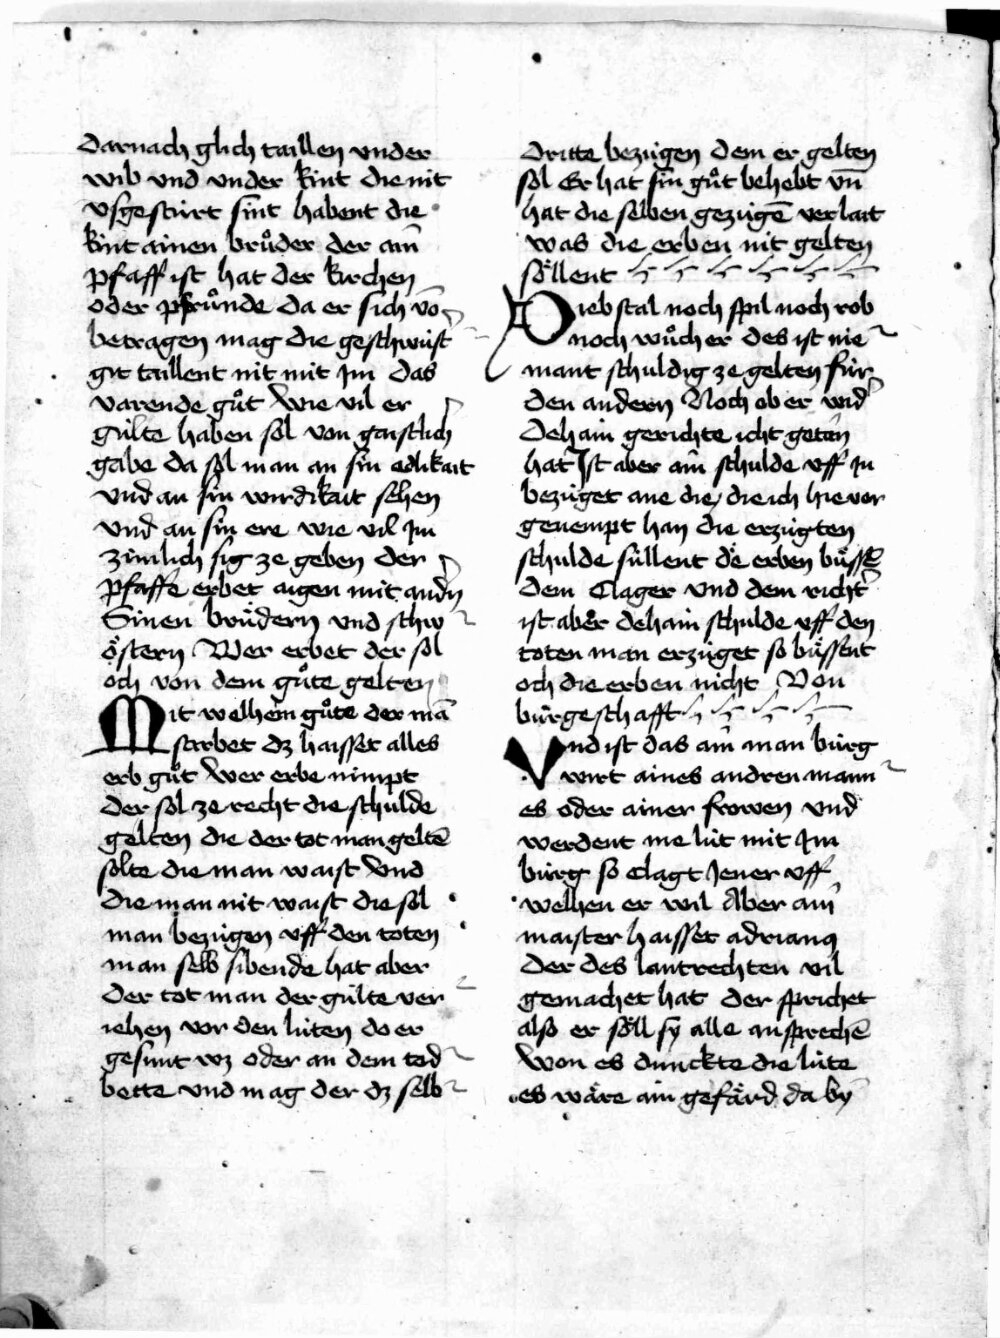 darnach glich taillen vnder
wib vnd vnder kint die nit
vsgestúrt sint habent die
kint ainen brůder der ain̄
pfaff ist hat der kirchen
oder pfrůnde da er sich vō
betragen mag die geschwúst
git taillent nit mit jm das
varende gůt Wie vil er
gúlte haben sol von gaistlich
gabe da sol man an sin edikait
vnd an sin wirdikait sehen
vnd an sin ere wie vil jm
zimlich sig ze geben der
pfaffe erbet aigen mit andn̄
Sinen brůdern vnd schw
östern Wer erbet der sol
och von dem gůte gelten
Mit welhem gůte der mā
starbet dz haisset alles
erb gůt Wer erbe nimpt
der sol ze recht die schulde
gelten die der tot man geltē
solte die man waist Vnd
die man nit waist die sol
man bezúgen vff den toten
man selb sibende hat aber
der tot man der gúlte ver
iehen vor den lúten do er
gesunt wz oder an dem tod
bette vnd mag der dz selb
dritte bezúgen dem er gelten
sol Er hat sin gůt behebt vn̄
hat die selben gezúgē verlait
was die erben nit gelten
söllent
Diebstal noch spil noch rob
noch wůcher des ist nie
mant schuldig ze gelten fúr
den andern Noch ob er vnd
dehain gerichte icht getān
hat Ist aber ain̄ schulde vff jn
bezúget ane die die ich hie vor
genempt han die erzúgten
schulde súllent dē erben bússē
dem Clager vnd dem richt
ist aber dehain schulde vff den
toten man erzúget so bússent
och die erben nicht Von
búrgeschafft
Vnd ist das ain̄ man búrg
wirt aines andren mann
es oder ainer frowen vnd
werdent me lút mit jm
búrg so clagt Jener vff
welhen er wil Aber ain̄
maister haisset adrianꝰ
der des lantrechten vil
gemachet hat der sprichet
also er söll sy alle ansprechē
Won es dunckte die lúte
es wäre ain gefärd da by